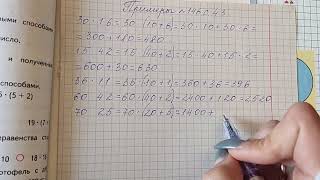 ными способами
число.
и полученн
способами.
5 · (5 + 2)
19 · (7
равенства сп
10 18 · 1
тофель с дв
Примеры с 146 № 43
30 · 16 = 30 · (10 + 6) = 30 · 10 + 30 · 6 =
= 300 + 180 = 480
15 · 42 = 15 · (40 + 2) = 15 · 40 + 15 · 2 =
= 600 + 30 = 630
36 · 11 = 36 · (10 + 1) = 360 + 36 = 396
60 · 42 = 60 · (40 + 2) = 2400 + 120 = 2520
70 · 25 = 70 · (20 + 5) = 1400 +